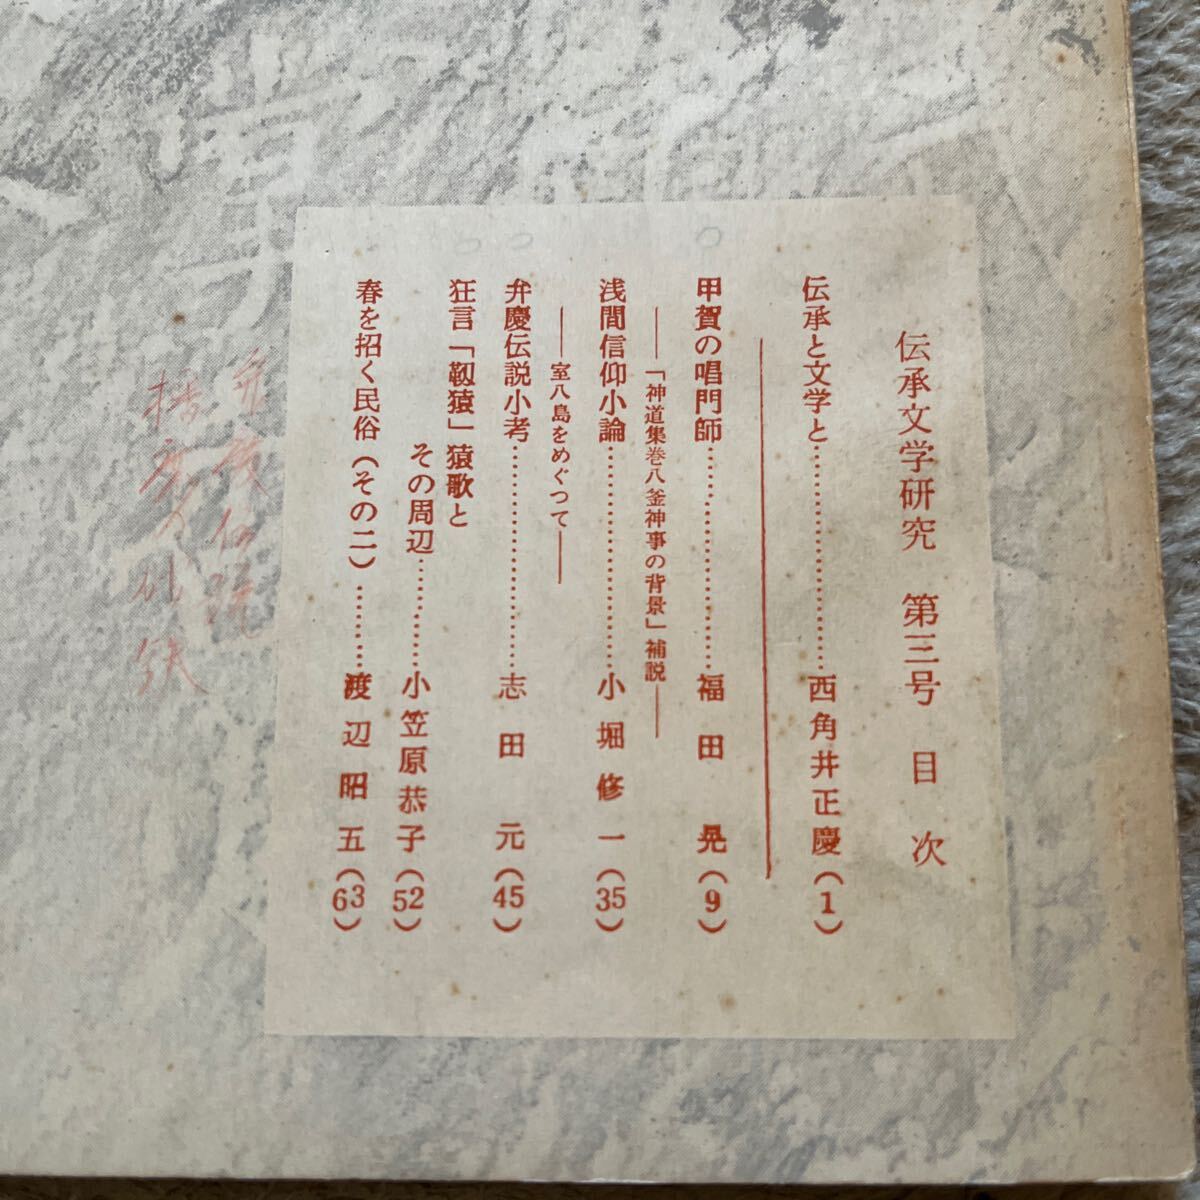 伝承文学研究 第三号 目次
伝承と文学と……………………西角井正慶(1)
甲賀の唱門師……………………福田晃(9)
――「神道集巻八釜神事の背景」補説――
浅間信仰小論……………………小堀修一(35)
――室八島をめぐつて――
弁慶伝説小考……………………志田元(45)
狂言「靱猿」猿歌と
その周辺…………小笠原恭子(52)
春を招く民俗(その二)…………渡辺昭五(63)
弁慶伝説